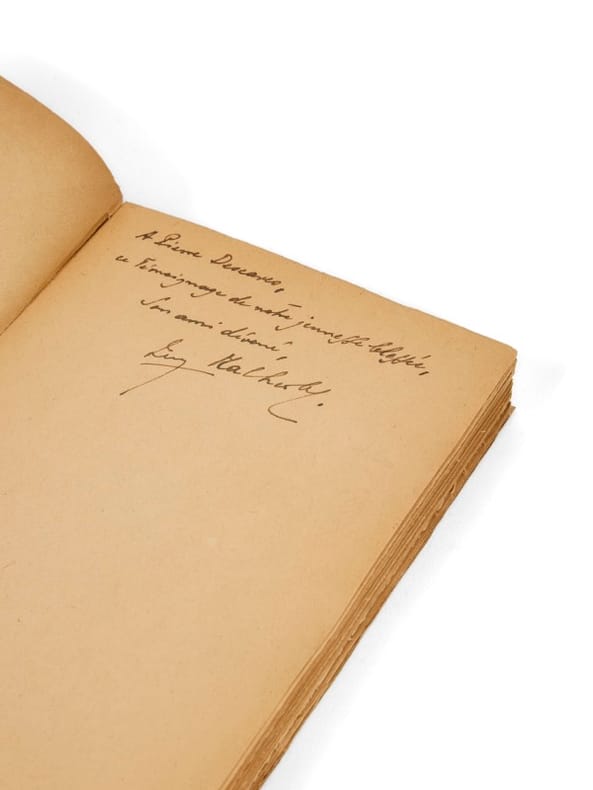 A Pierre Descaves, –
ce Témoignage de notre jeunesse blessée,
Son ami dévoué,